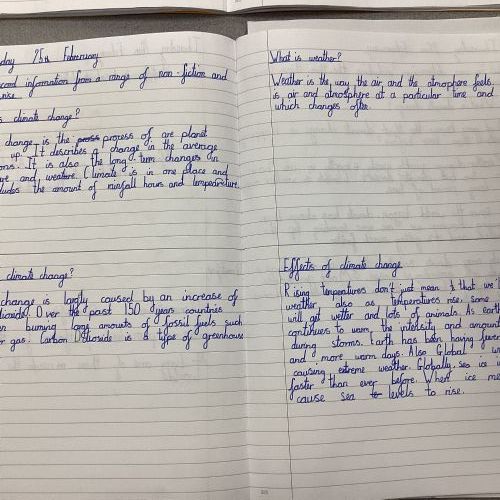 day 25th February
cord information from a range of non-fiction and
rise
s climate change?
change is the process of are planet
up. It describes a change in the average
ons. It is also the long term changes in
ure and weature. Climate is in one place and
ludes the amount of rainfall hours and tempearture.
climate change?
change is largly caused by an increase of
dioxide. Over the past 150 years countries
n burning large amounts of fossil fuels such
r gas. Carbon Dioxide is a type of greenhouse
What is weather?
Weather is the way the air and the atmophere feels
is air and atmosphere at a particular time and
which changes often.
Effects of climate change
Rising temperatures don't just mean that we'll
weather, also as temperatures rise. Some
will get wetter and lots of animals. As earth
continues to warm, the intensity and amount
during storms. Earth has been having fewer
and more warm days. Also Global w
causing extreme weather. Globally, sea ice i
faster than ever before. When ice me
cause sea levels to rise.